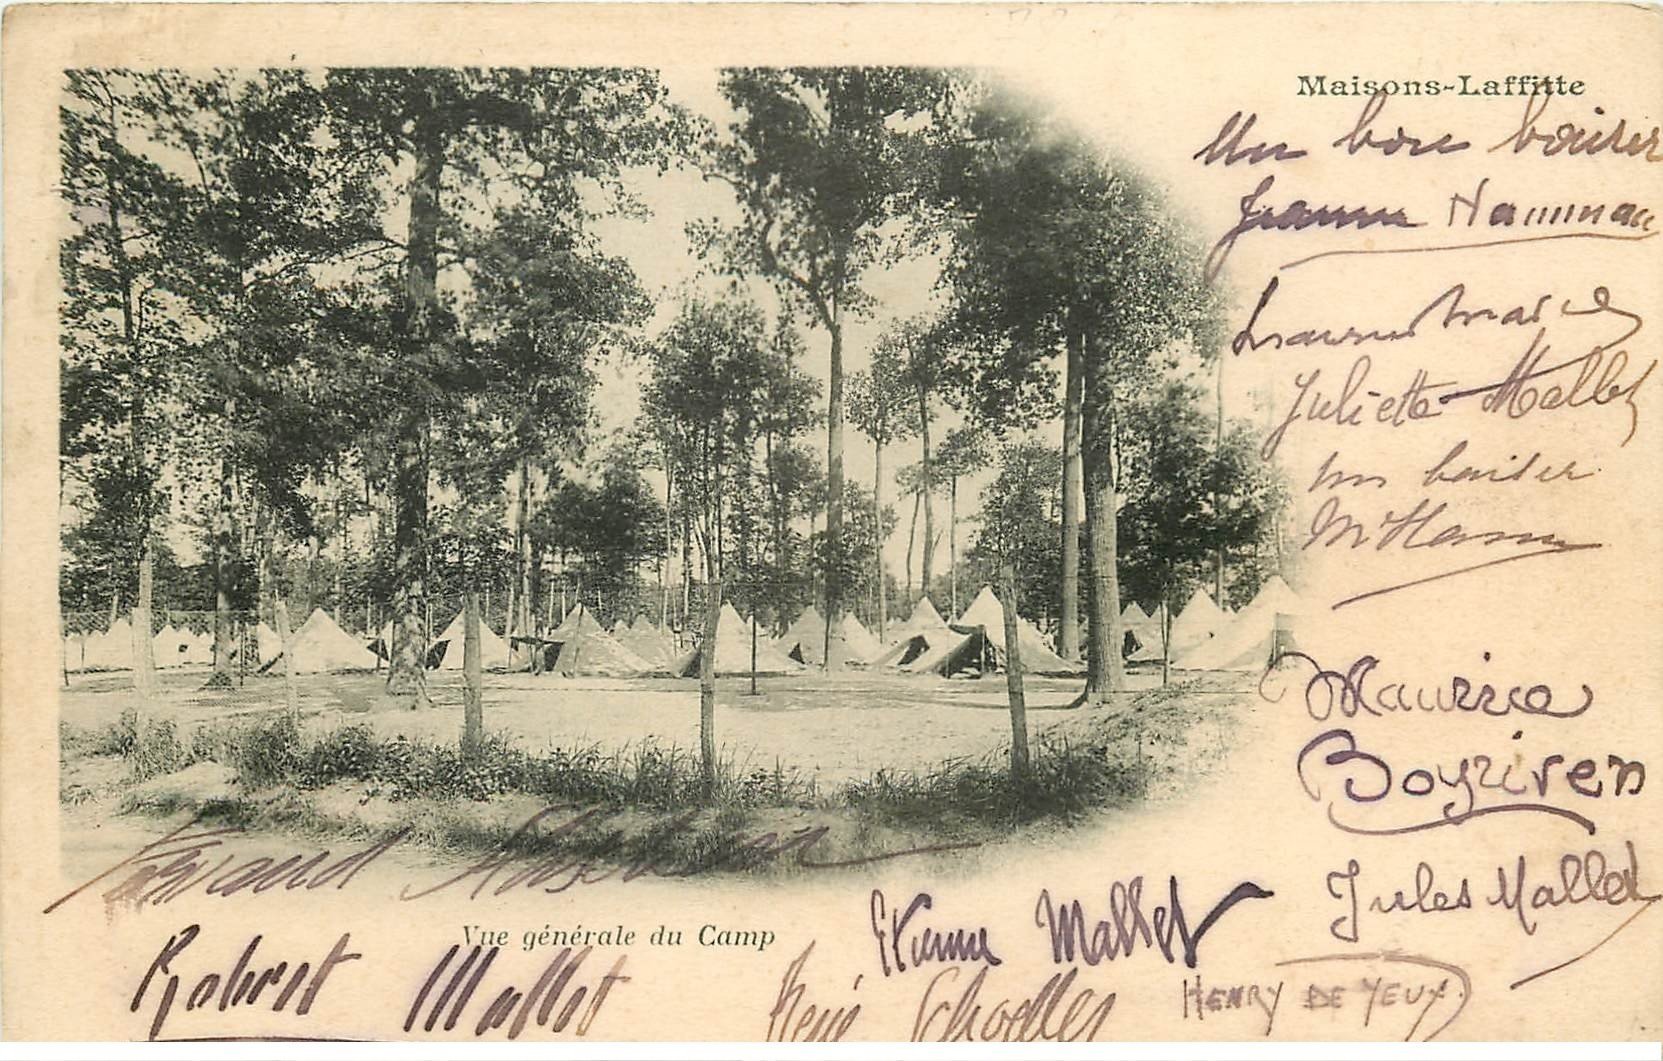 Maisons-Laffitte
Un bon baiser
Jeanne
Juliette Mallet
un baiser
Maurice
Boyriven
Jules Mallet
Vue générale du Camp
Etienne Mallet
Robert Mallet
René Schoeller
HENRY DE YEUX